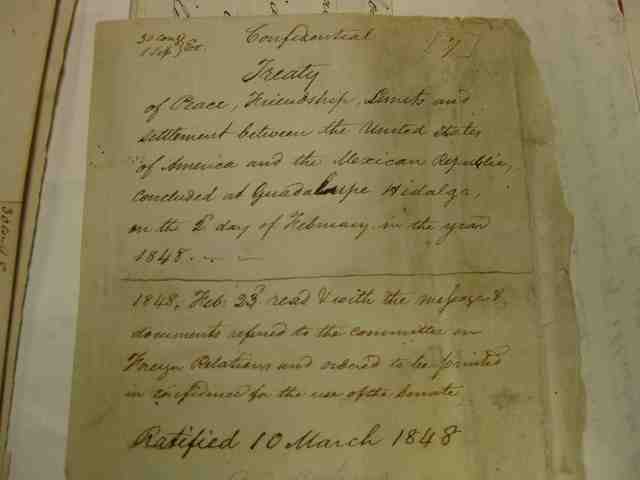 30 Cong
1 Sess
Confidential
[7]
Treaty
of Peace, Friendship, Limits and
settlement between the United States
of America and the Mexican Republic,
concluded at Guadalupe Hidalgo,
on the 2d day of February in the year
1848.
1848, Feb. 23d read & with the message &
documents refered to the committee on
Foreign Relations and ordered to be printed
in confidence for the use of the Senate
Ratified 10 March 1848